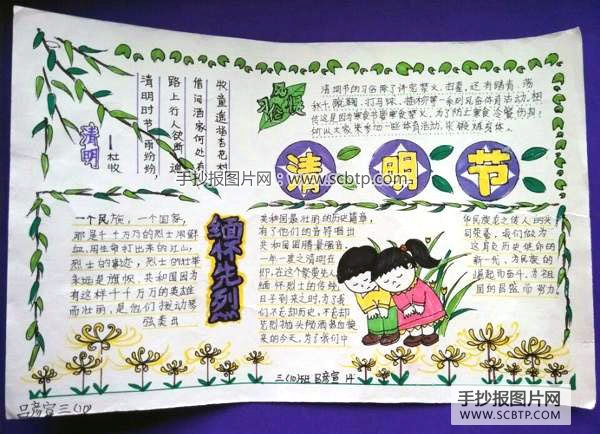 清明
杜牧
清明时节雨纷纷，
路上行人欲断
借问酒家何处有
牧童遥指杏花村
风俗
习惯
清明节的习俗除了讲究禁火、扫墓，还有踏青、荡
秋千、蹴鞠、打马球、插柳等一系列风俗体育活动。相
传这是因为寒食节要寒食禁火，为了防止寒食冷餐伤身，
所以大家来参加一些体育活动，来锻炼身体。
清明节
手抄报图片网：www.scbtp.com
缅怀先烈
一个民族，一个国家，
那是千千万万的烈士用鲜
血、用生命打出来的江山，
烈士的事迹，烈士的壮举
永远是旗帜，共和国因为
有这样千千万万的英雄
而壮丽，是他们拨动琴
弦奏出
共和国最壮丽的历史篇章，
有了他们的音符唱出
共和国
一年一度之清明在
缅怀烈士的
日子到来之时，为了我
们不忘却历史，不忘却
先烈抛头颅洒热血
来的今天，为了我们中
华民族
荣誉，我们做为
肩负历史使命的
新一代，为民族的
崛起而奋斗，为祖国
的昌盛而努力。
三(10)班 吕彦宣
吕彦宣 三(10)
手抄报图片网
WWW.SCBTP.COM